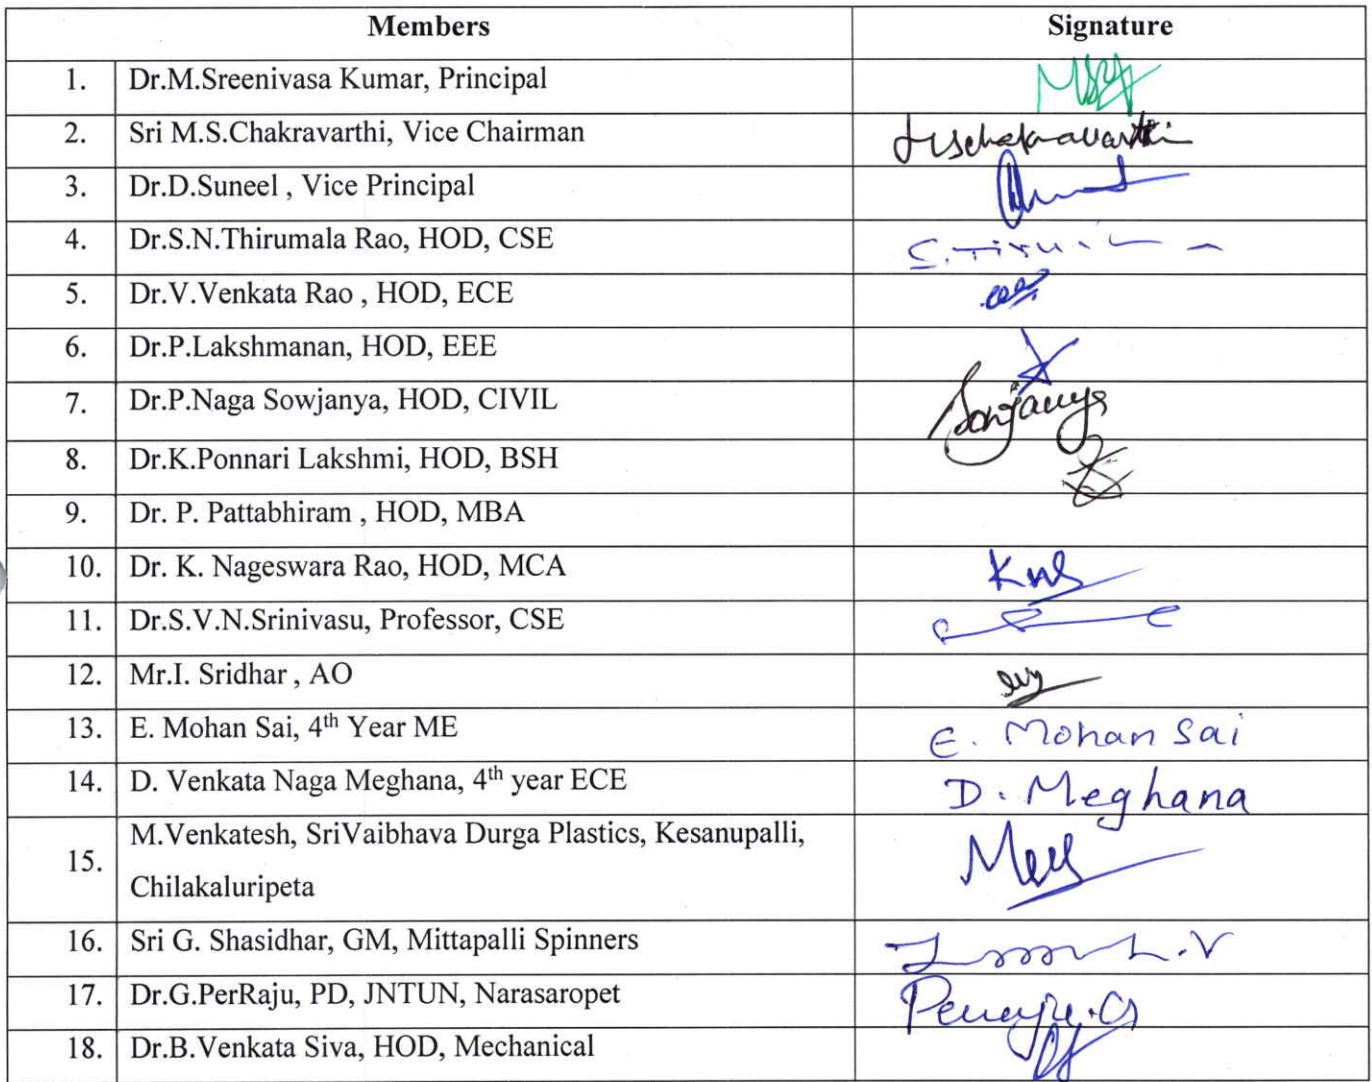 Members Signature
1. Dr.M.Sreenivasa Kumar, Principal
2. Sri M.S.Chakravarthi, Vice Chairman
3. Dr.D.Suneel , Vice Principal
4. Dr.S.N.Thirumala Rao, HOD, CSE
5. Dr.V.Venkata Rao , HOD, ECE
6. Dr.P.Lakshmanan, HOD, EEE
7. Dr.P.Naga Sowjanya, HOD, CIVIL
8. Dr.K.Ponnari Lakshmi, HOD, BSH
9. Dr. P. Pattabhiram , HOD, MBA
10. Dr. K. Nageswara Rao, HOD, MCA
11. Dr.S.V.N.Srinivasu, Professor, CSE
12. Mr.I. Sridhar , AO
13. E. Mohan Sai, 4th Year ME E. Mohan Sai
14. D. Venkata Naga Meghana, 4th year ECE D. Meghana
15. M.Venkatesh, SriVaibhava Durga Plastics, Kesanupalli,
Chilakaluripeta
16. Sri G. Shasidhar, GM, Mittapalli Spinners
17. Dr.G.PerRaju, PD, JNTUN, Narasaropet
18. Dr.B.Venkata Siva, HOD, Mechanical